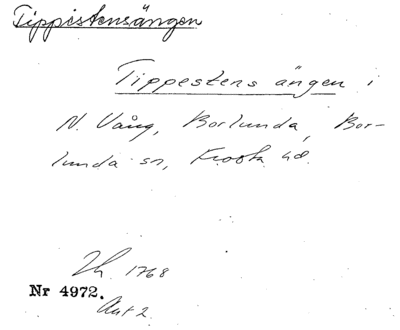 Tippistensängen
Tippestens ängen i
N. Vång, Borlunda, Bor-
lunda sn, Frosta hd.
Lh. 1768
Nr 4972.
Akt 2